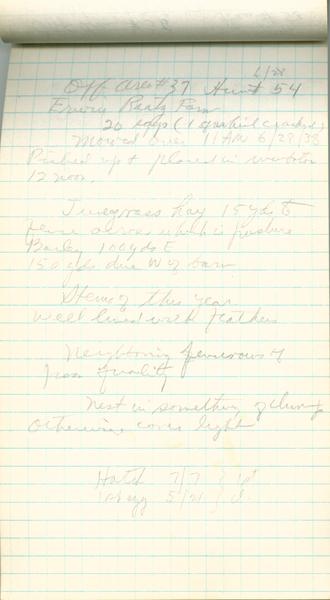 6/28
Off Area #37 Hunt 54
Erwin Realy Farm
20 eggs (1 cracked)
Mowed over 11 AM 6/28/38
Picked up & placed in incubator
12 noon.
Junegrass hay 15 yds to
fence across which is pasture
Barley 100 yds E
150 yds due W of barn
Stems of this year
well lined with feathers
Neighboring
poor quality
Nest in something of clump
Otherwise cover light
Hatch 7/7
1st egg 5/21